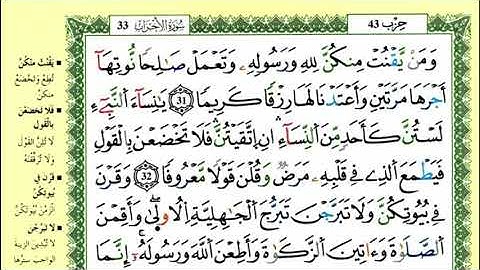 حِزْب 43
سُورَةُ الأَحْزَابِ 33
وَمَنْ يَّقْنُتْ مِنكُنَّ لِلهِ وَرَسُولِهِۦ وَتَعْمَلْ صَٰلِحاً نُّوتِهَآ
أَجْرَهَا مَرَّتَيْنِ وَأَعْتَدْنَا لَهَا رِزْقاً كَرِيماً 31 يَٰنِسَآءَ اَ۬لنَّبِےٓءِ
لَسْتُنَّ كَأَحَدٍ مِّنَ اَ۬لنِّسَآءِ اِنِ اِتَّقَيْتُنَّ فَلَا تَخْضَعْنَ بِالْقَوْلِ
فَيَطْمَعَ اَ۬لذِے فِے قَلْبِهِۦ مَرَضٌ وَقُلْنَ قَوْلاً مَّعْرُوفاً 32 وَقَرْنَ
فِے بُيُوتِكُنَّ وَلَا تَبَرَّجْنَ تَبَرُّجَ اَ۬لْجَٰهِلِيَّةِ اِ۬لُاولَىٰ وَأَقِمْنَ
اَ۬لصَّلَوٰةَ وَءَاتِينَ اَ۬لزَّكَوٰةَ وَأَطِعْنَ اَ۬للَّهَ وَرَسُولَهُۥٓ إِنَّمَا
يَقْنُتْ مِنكُنَّ
تُطِعْ وَتَخْضَعْ
مِنكُنَّ
فَلَا تَخْضَعْنَ
بِالْقَوْلِ
لَا تُلِنَّ القَوْلَ
وَلَا تُرَقِّقْنَهُ
قَرْنَ فِي
بُيُوتِكُنَّ
الْزَمْنَ بُيُوتَكُنَّ
لَا تَبَرَّجْنَ
لَا تُبْدِينَ الزِّينَةَ
الوَاجِبَ سَتْرُهَا